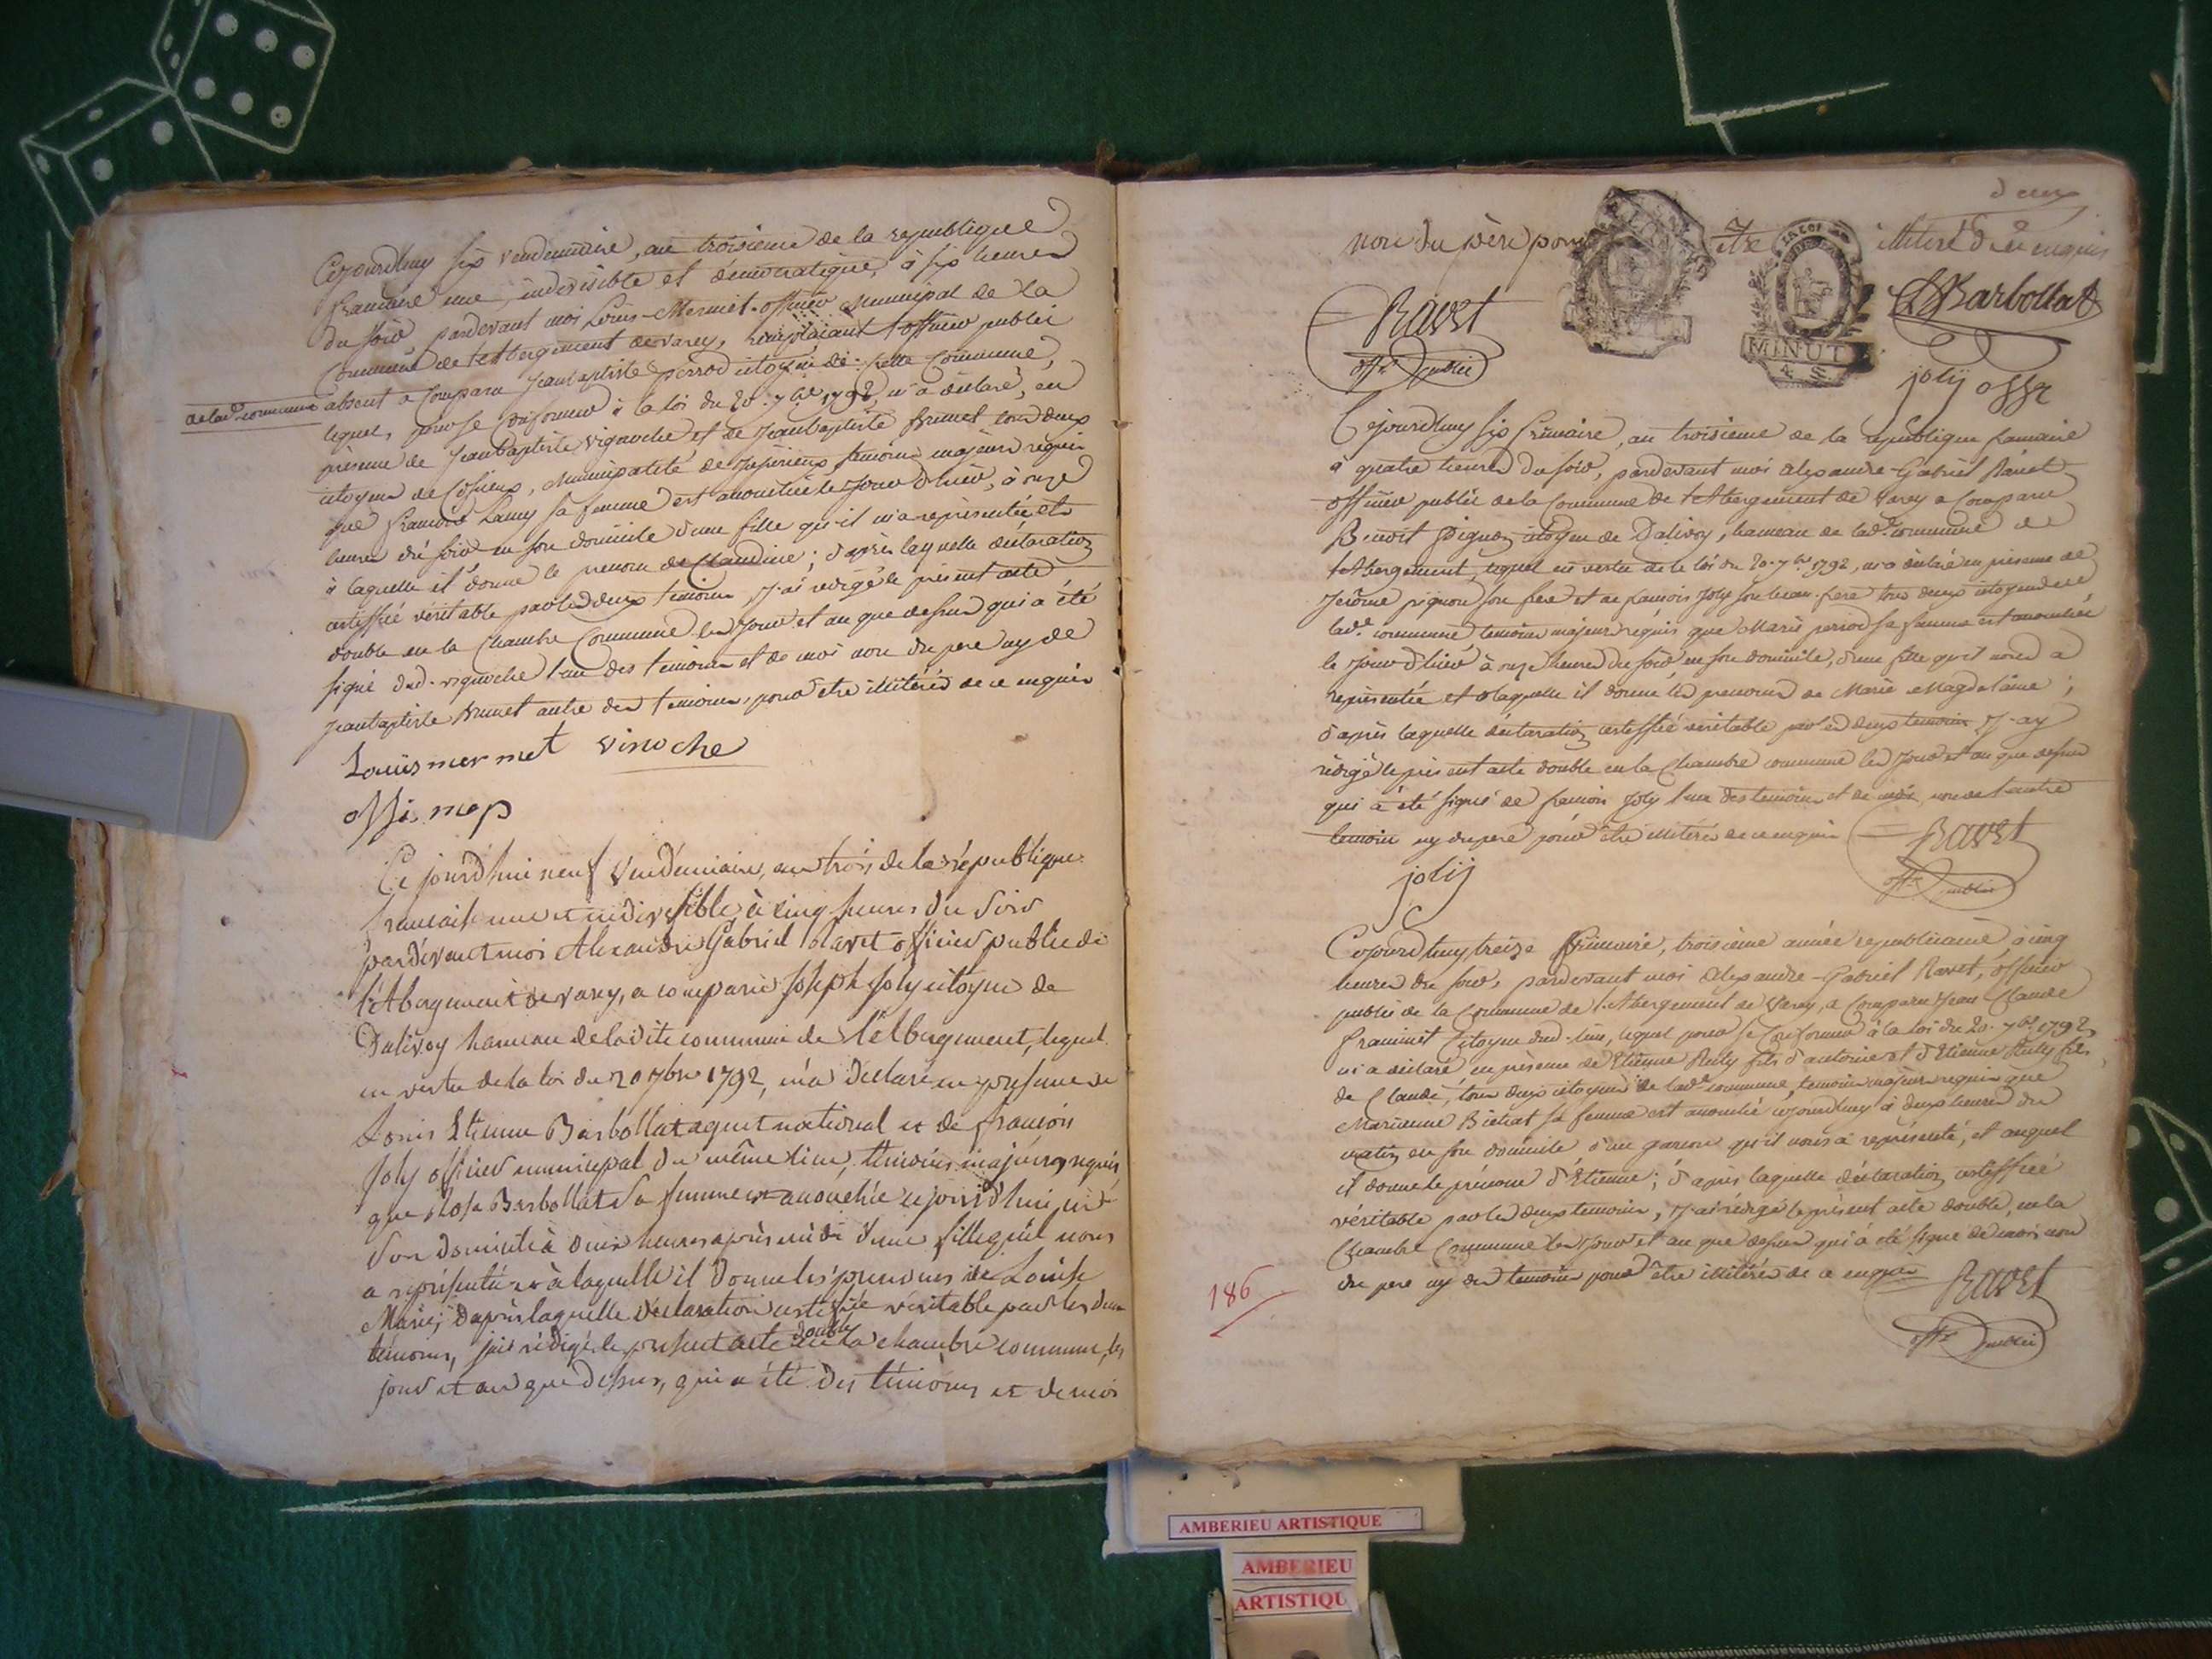 Cejourdhuy six vendemiaire, an troisieme de la republique
francaise une, indivisible et démocratique, à six heures
du soir, pardevant moi Louis Mermet officier Municipal de la
Commune de l'Abergement de varey, remplacant l'officier public
absent a Comparu Jeanbaptiste perrod citoyen de cette Commune,
de lad. commune
lequel, pour se conformer à la loi du 20 7bre 1792, m'a déclaré, en
présence de Jean Baptiste vignoche et de Jeanbaptiste Brunet tous deux
citoyens de, Municipalité de Jujurieux temoins majeurs requis
que francoise Lamy sa femme est accouchée le jour d'hier, à onze
heures du soir en son domicile d'une fille qu'il m'a representée, et
à laquelle il donne le prenom de Claudine; d'après laquelle déclaration
certiffié véritable par les deux temoins, j'ai redigé le présent acte
double en la Chambre Commune les jour et an que dessus qui a été
signé dud. vignoche l'un des temoins et de moi non du pere ny de
Jeanbaptiste Brunet autre des temoins, pour être illitérés de ce enquis
Louis mermet vinoche
offi. mop
Ce jourd'hui neuf Vendémiaire, an trois de la république
francaise une et indivisible, à cinq heures du soir
pardevant moi Alexandre Gabriel Ravet officier public de
l'Abergement de varey, a comparu Joseph Joly citoyen de
Dalivoy hameau de la dite commune de l'Abergement, lequel
en vertu de la loi du 20 7bre 1792, m'a déclaré en presence de
Louis Etienne Barbollat agent national et de françois
Joly officier municipal du même lieu, témoins majeurs, requis
que Rose Barbollat sa femme est accouchée cejourd'hui en
son domicile à heures après midi d'une fille qu'il nous
a représentée et à laquelle il donne les prenoms de Louise
Marie; d'après laquelle déclaration certifiée véritable par les deux
témoins, j'ai rédigé le présent acte double en la chambre commune, les
jour et an que dessus, qui a été des témoins et de moi
deux
non du père pour être illiteré de ce enquis
Ravet
offr public
LBarbollat
MINUTE
4 S.
jolij offr
Cejourdhuy six frimaire, an troisieme de la republique francaise
à quatre heures du soir, pardevant moi alexandre-Gabriel Ravet
officier public de la Commune de l'Abergement de Varey a Comparu
Benoit pignon citoyen de Dalivoy, hameau de lad.e commune de
l'Abergement, lequel en vertu de la loi du 20. 7bre 1792, m'a déclaré en presence de
Jerôme pignon son frere et de francois Joly son beau-frere tous deux citoyens de
lad.e commune temoins majeurs requis que Marie perrod sa femme est accouchée
le jour d'hier à onze heures du soir en son domicile, d'une fille qu'il nous a
representée et à laquelle il donne les prenoms de Marie Magdelaine;
d'après laquelle déclaration certiffié véritable par les deux temoins J'ay
rédigé le présent acte double en la Chambre commune les jour et an que dessus
qui a été signé de francois Joly l'un des temoins et de moi, non de l'autre
temoin ny du pere pour être illitérés de ce enquis
Ravet
jolij
offr public
Cejourdhuy treize frimaire, troisième année republicaine, à cinq
heures du soir, pardevant moi Alexandre-Gabriel Ravet, officier
public de la Commune de l'Abergement de Varey, a Comparu Jean Claude
framinet Citoyen dud. lieu, lequel pour se conformer à la loi du 20. 7bre 1792,
m'a déclaré, en présence de Etienne Rully fils d'antoine et d'Etienne Rully fils
de Claude, tous deux citoyens de lad.e commune, temoins majeurs requis que
Marianne sa femme est accouchée cejourdhuy à deux heures du
matin en son domicile d'un garcon qu'il nous a représenté, et auquel
il donne le prénom d'Etienne; d'après laquelle déclaration certiffiée
véritable par les deux temoins, j'ai rédigé le présent acte double, en la
Chambre Commune les jour et an que dessus qui a été signé de moi non
du pere ny des temoins pour être illitérés de ce enquis
186
Ravet
offr public
AMBERIEU ARTISTIQUE
AMBERIEU
ARTISTIQU